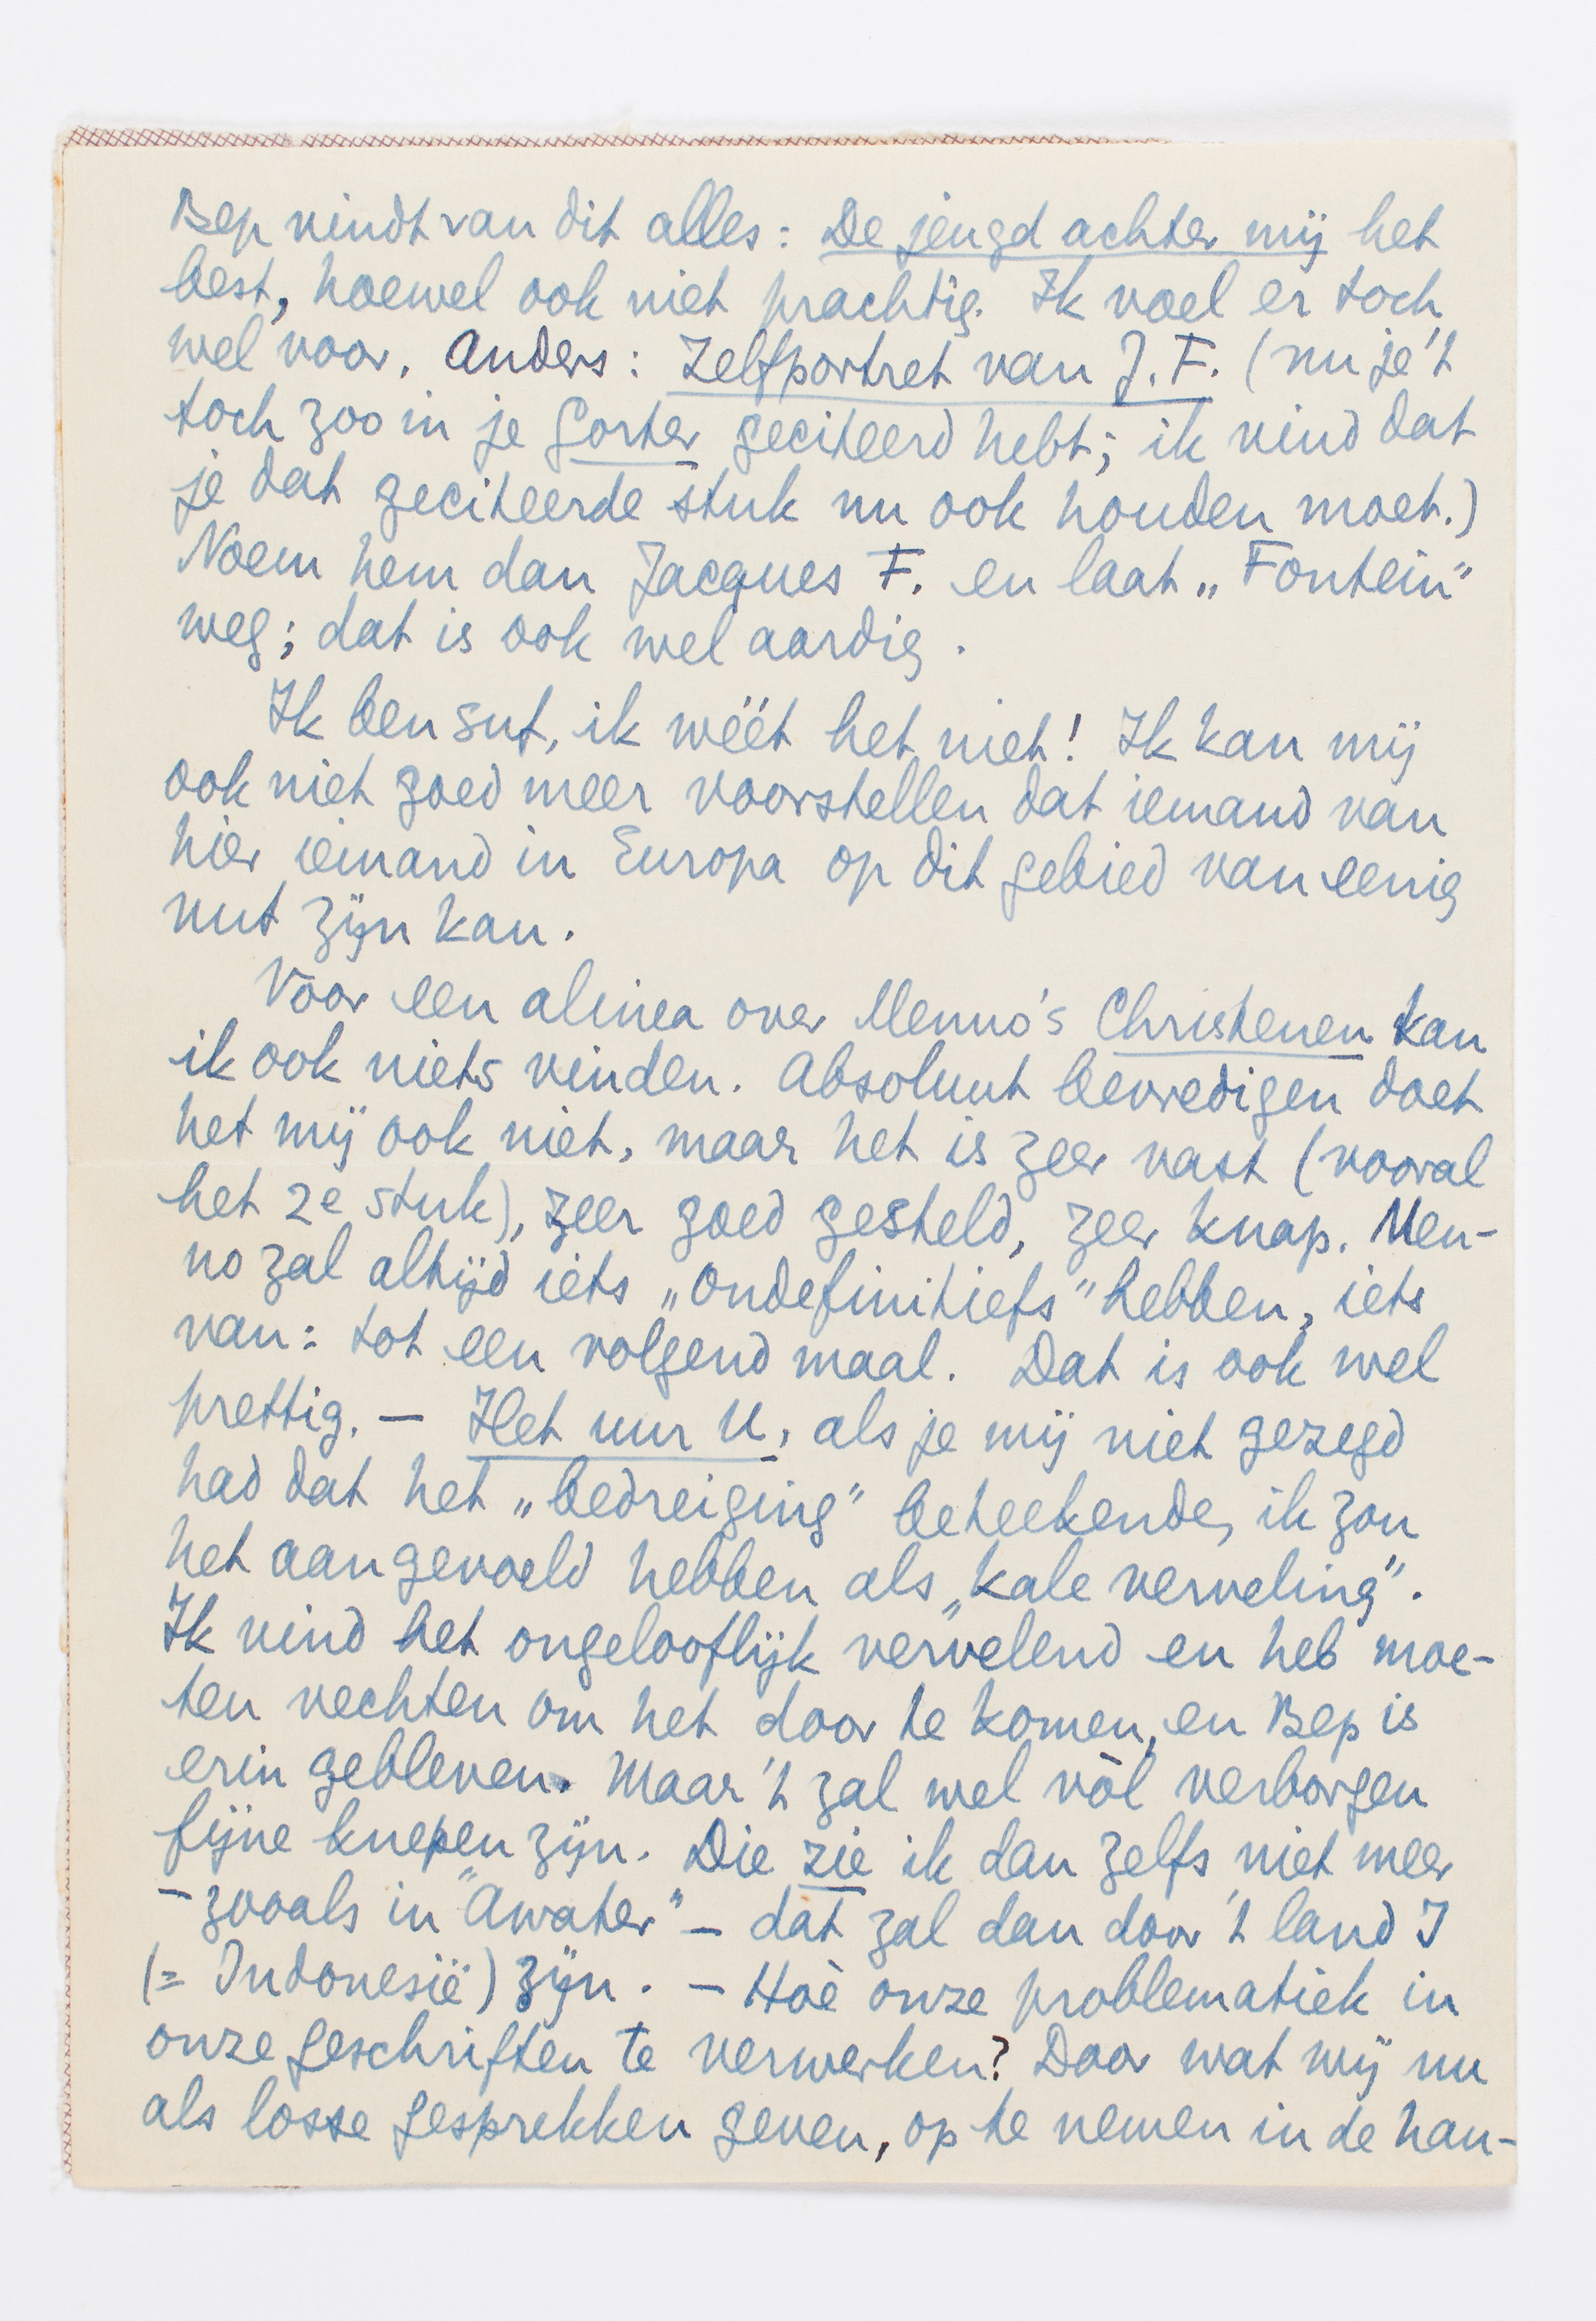 Bep vindt van dit alles: De jeugd achter mij het
best, hoewel ook niet prachtig. Ik voel er toch
wel voor. Anders: Zelfportret van J.F. (nu je 't
toch zoo in je Gorter geciteerd hebt; ik vind dat
je dat geciteerde stuk nu ook houden moet.)
Noem hem dan Jacques F. en laat „Fontein"
weg; dat is ook wel aardig.
Ik ben suf, ik wéét het niet! Ik kan mij
ook niet goed meer voorstellen dat iemand van
hier iemand in Europa op dit gebied van eenig
nut zijn kan.
Voor een alinea over Menno's Christenen kan
ik ook niets vinden. Absoluut bevredigen doet
het mij ook niet, maar het is zeer vast (vooral
het 2e stuk), zeer goed gesteld, zeer knap. Men-
no zal altijd iets „ondefinitiefs" hebben, iets
van: tot een volgend maal. Dat is ook wel
prettig. — Het uur U, als je mij niet gezegd
had dat het „bedreiging" beteekende, ik zou
het aangevoeld hebben als „kale verveling".
Ik vind het ongelooflijk vervelend en heb moe-
ten vechten om het door te komen, en Bep is
erin gebleven. Maar 't zal wel vòl verborgen
fijne knepen zijn. Die zie ik dan zelfs niet meer
– zooals in "Awater" – dat zal dan door 't land I
(= Indonesië) zijn. — Hoè onze problematiek in
onze geschriften te verwerken? Door wat wij nu
als losse gesprekken geven, op te nemen in de han-